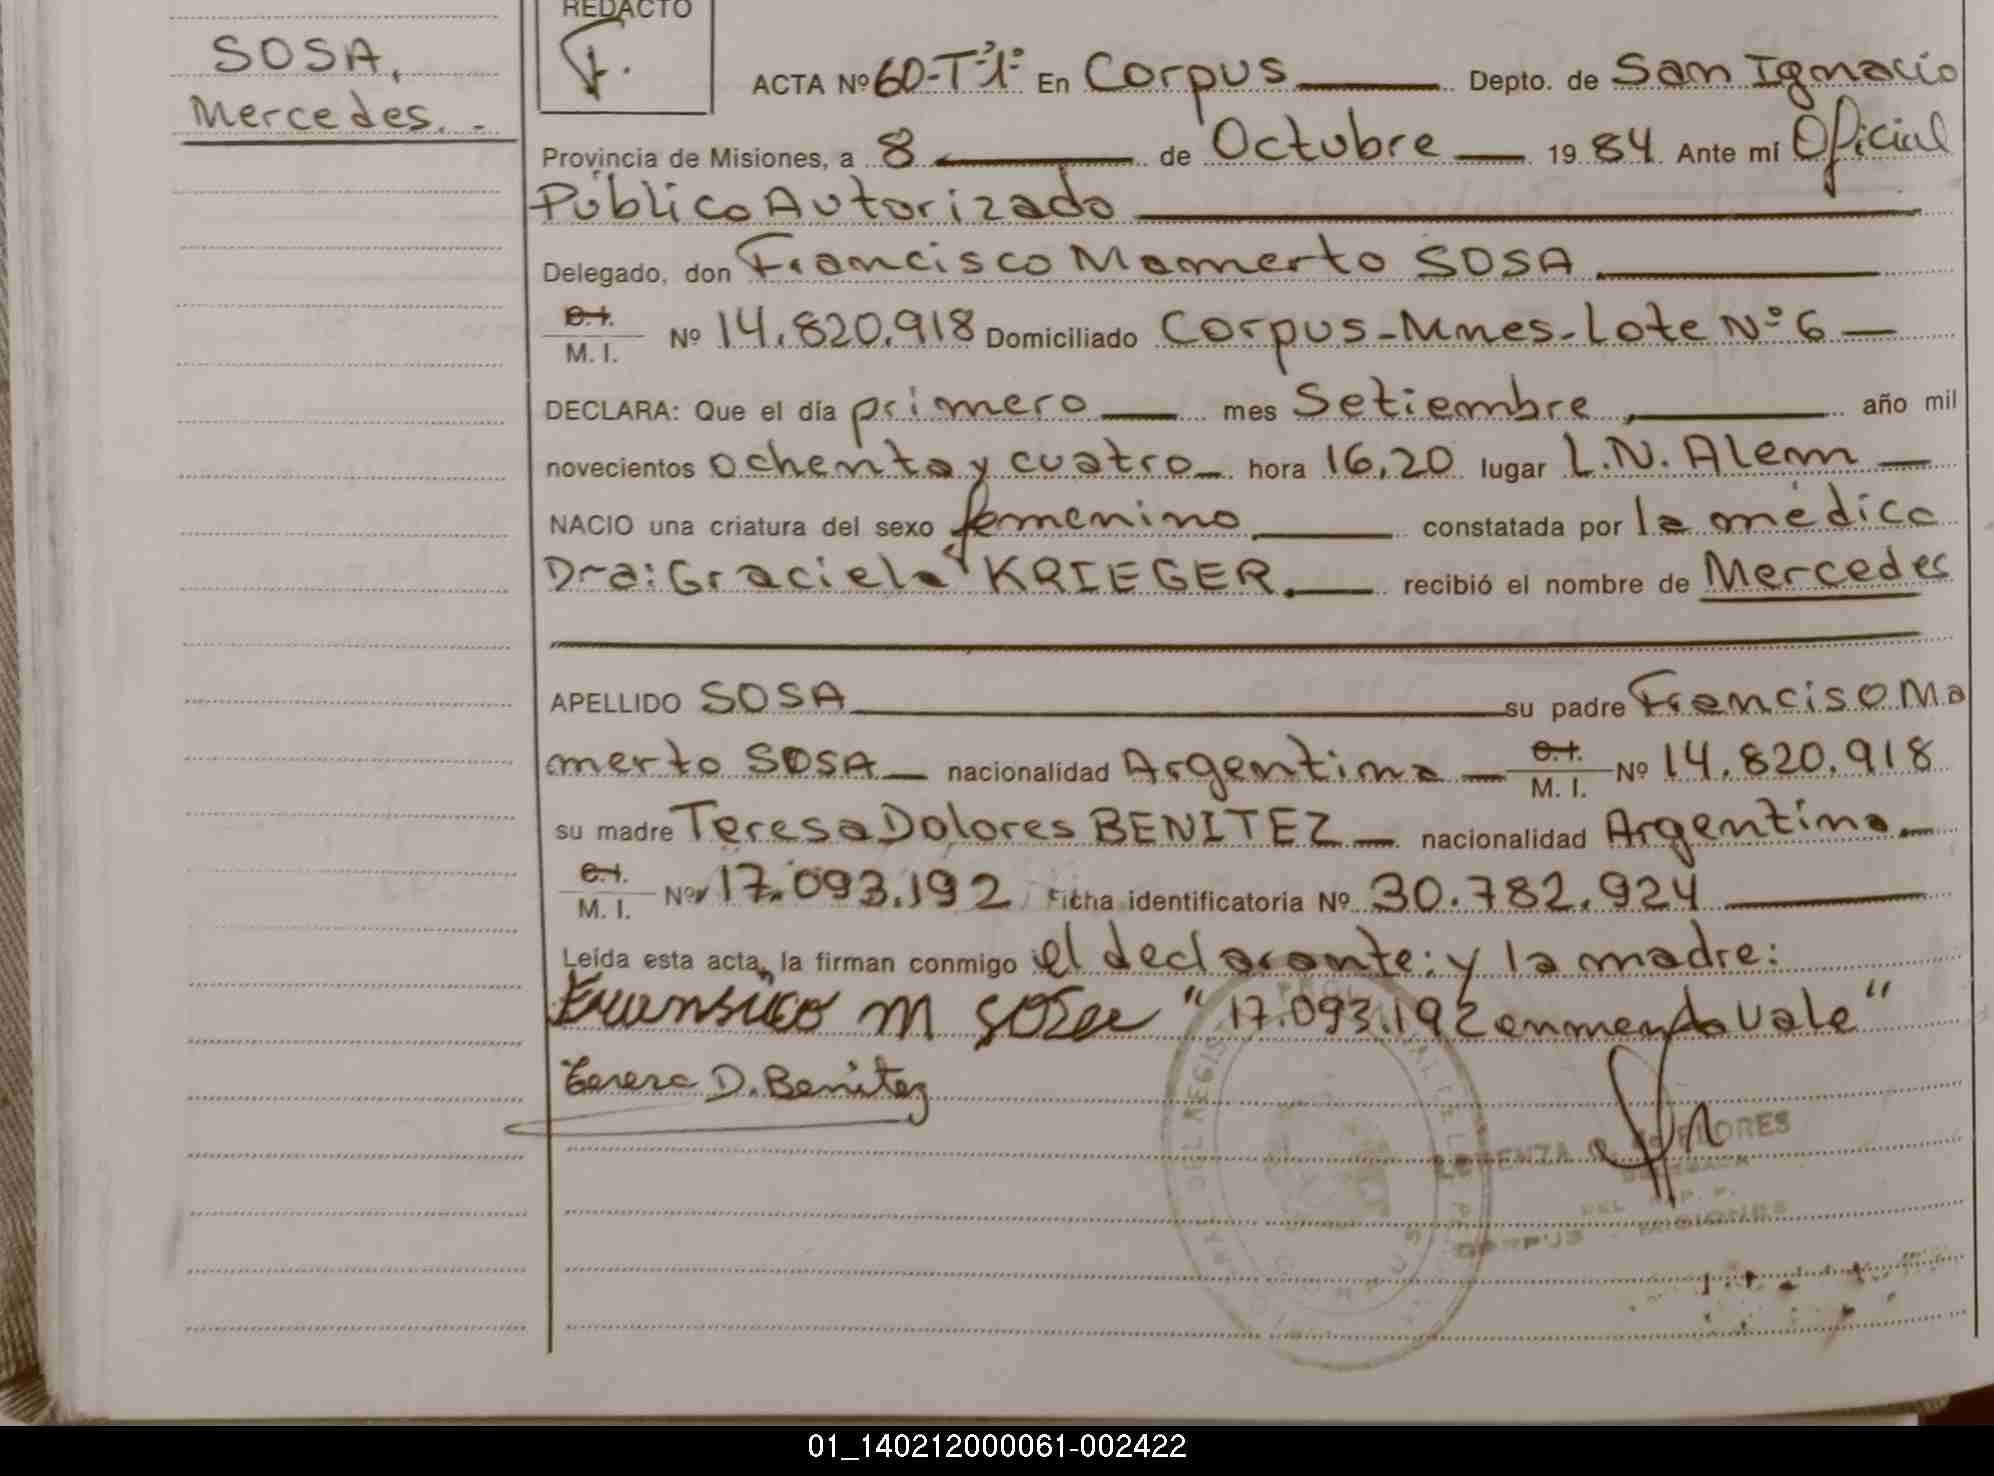 REDACTO
SOSA,
Mercedes. -
F.
ACTA Nº 60-Tº1º- En Corpus Depto. de San Ignacio
Provincia de Misiones, a 8 de Octubre 1984. Ante mi Oficial
Público Autorizado
Delegado, don Francisco Mamerto SOSA
C.I.
M. I. Nº 14.820.918 Domiciliado Corpus-Mnes-Lote Nº 6
DECLARA: Que el día primero mes Setiembre, año mil
novecientos ochenta y cuatro hora 16,20 lugar L.N. Alem
NACIO una criatura del sexo femenino, constatada por la médica
Dra: Graciela KRIEGER. recibió el nombre de Mercedes
APELLIDO SOSA su padre Franciso Ma
merto SOSA nacionalidad Argentina C.I.
M. I. Nº 14.820.918
su madre Teresa Dolores BENITEZ nacionalidad Argentina
C.I.
M. I. Nº 17.093.192 Ficha identificatoria Nº 30.782.924
Leída esta acta, la firman conmigo el declarante: y la madre:
Fransico M Sosa "17.093.192 enmendo vale"
Teresa D. Benitez
FLORES
CORPUS - MISIONES
01_140212000061-002422